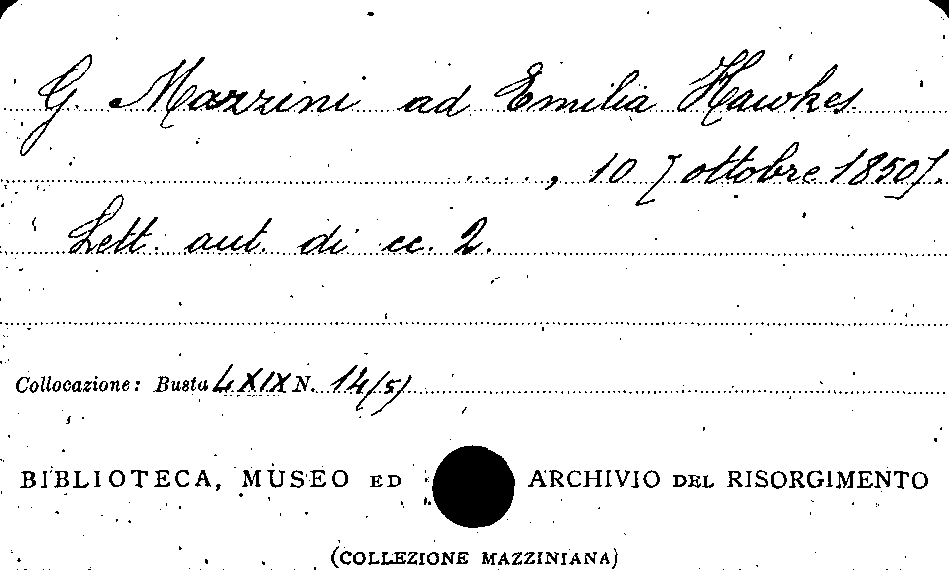 G. Mazzini ad Emilia Hawkes
...., 10 [ottobre 1850].
Lett. aut. di cc. 2.
Collocazione: Busta LXIX N. 14/5)
BIBLIOTECA, MUSEO ED ARCHIVIO DEL RISORGIMENTO
(COLLEZIONE MAZZINIANA)